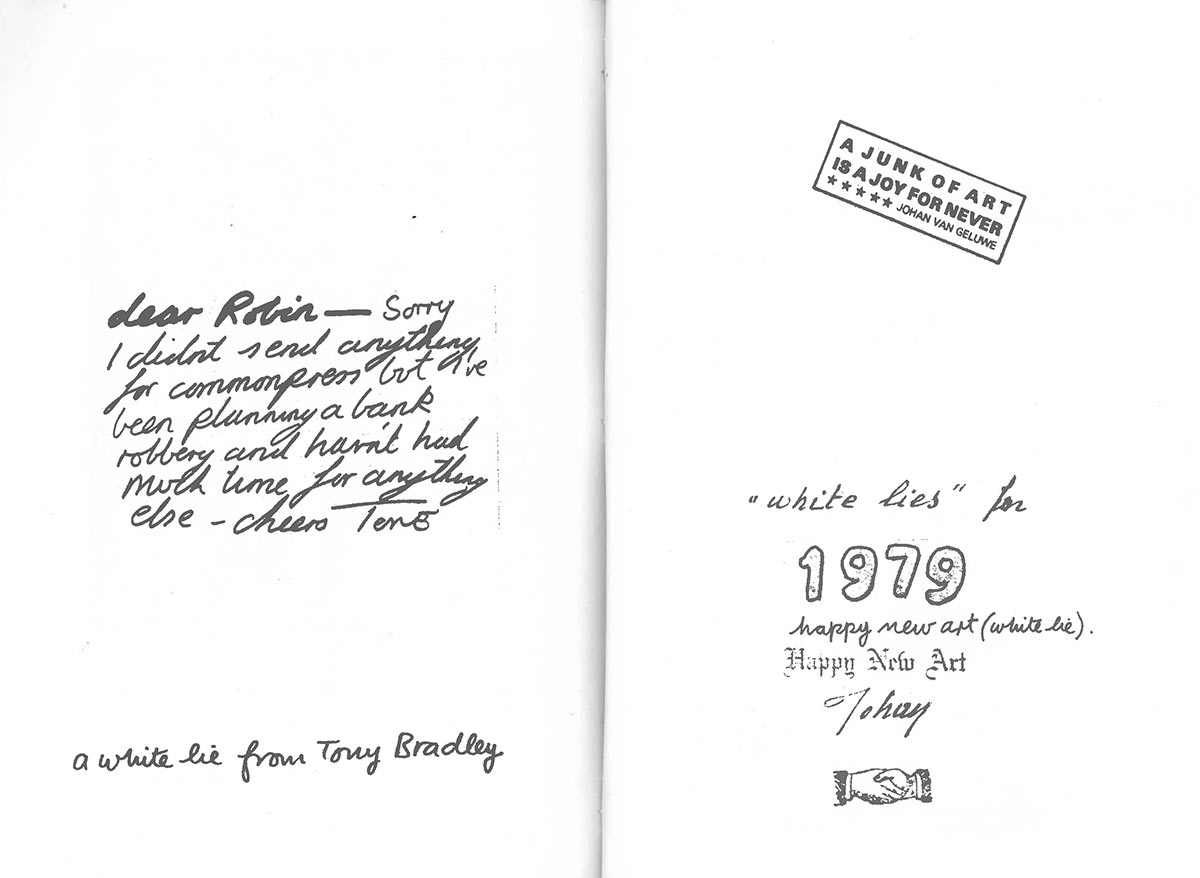 dear Robin — Sorry
I didnt send anything
for commonpress but I've
been planning a bank
robbery and havn't had
much time for anything
else - cheers TonE
a white lie from Tony Bradley
A JUNK OF ART
IS A JOY FOR NEVER
★★★★★ JOHAN VAN GELUWE
"white lies" for
1979
happy new art (white lie).
Happy New Art
Johan